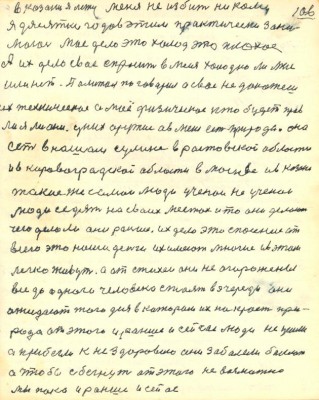 в казани я лежу меня не избит никому
1966
Я десятки годов этим практически зани
мался мое дело это холод это плохое
А их дело свое хранит в меня холодно ли мне
или нет. Политам поговорил а свае не доказали
их техническое а моё физическое кто будет прав
ли я ли они. у них оружие а в меня есть природа. она
есть в нашем сулине в ростовской области
и в кировоградской области в москве и в казани
такие же самые люди ученои не ученои
люди седят на своих местах и то они делают
чего делали они раньше. их дело это спасение от
всего это наши деньги их имеют многие и в этом
легко живут. а от стихеи они не огорожены
все до одного человека стоят в очереди они
ожидают того дня в котором их накроет при-
рода от этого и раньше и сейчас люди не ушли
а прибегли к не здоровию они заболели болеют
а чтобы сбегнут от этого не возможно
мы пока и раньше и сейчас